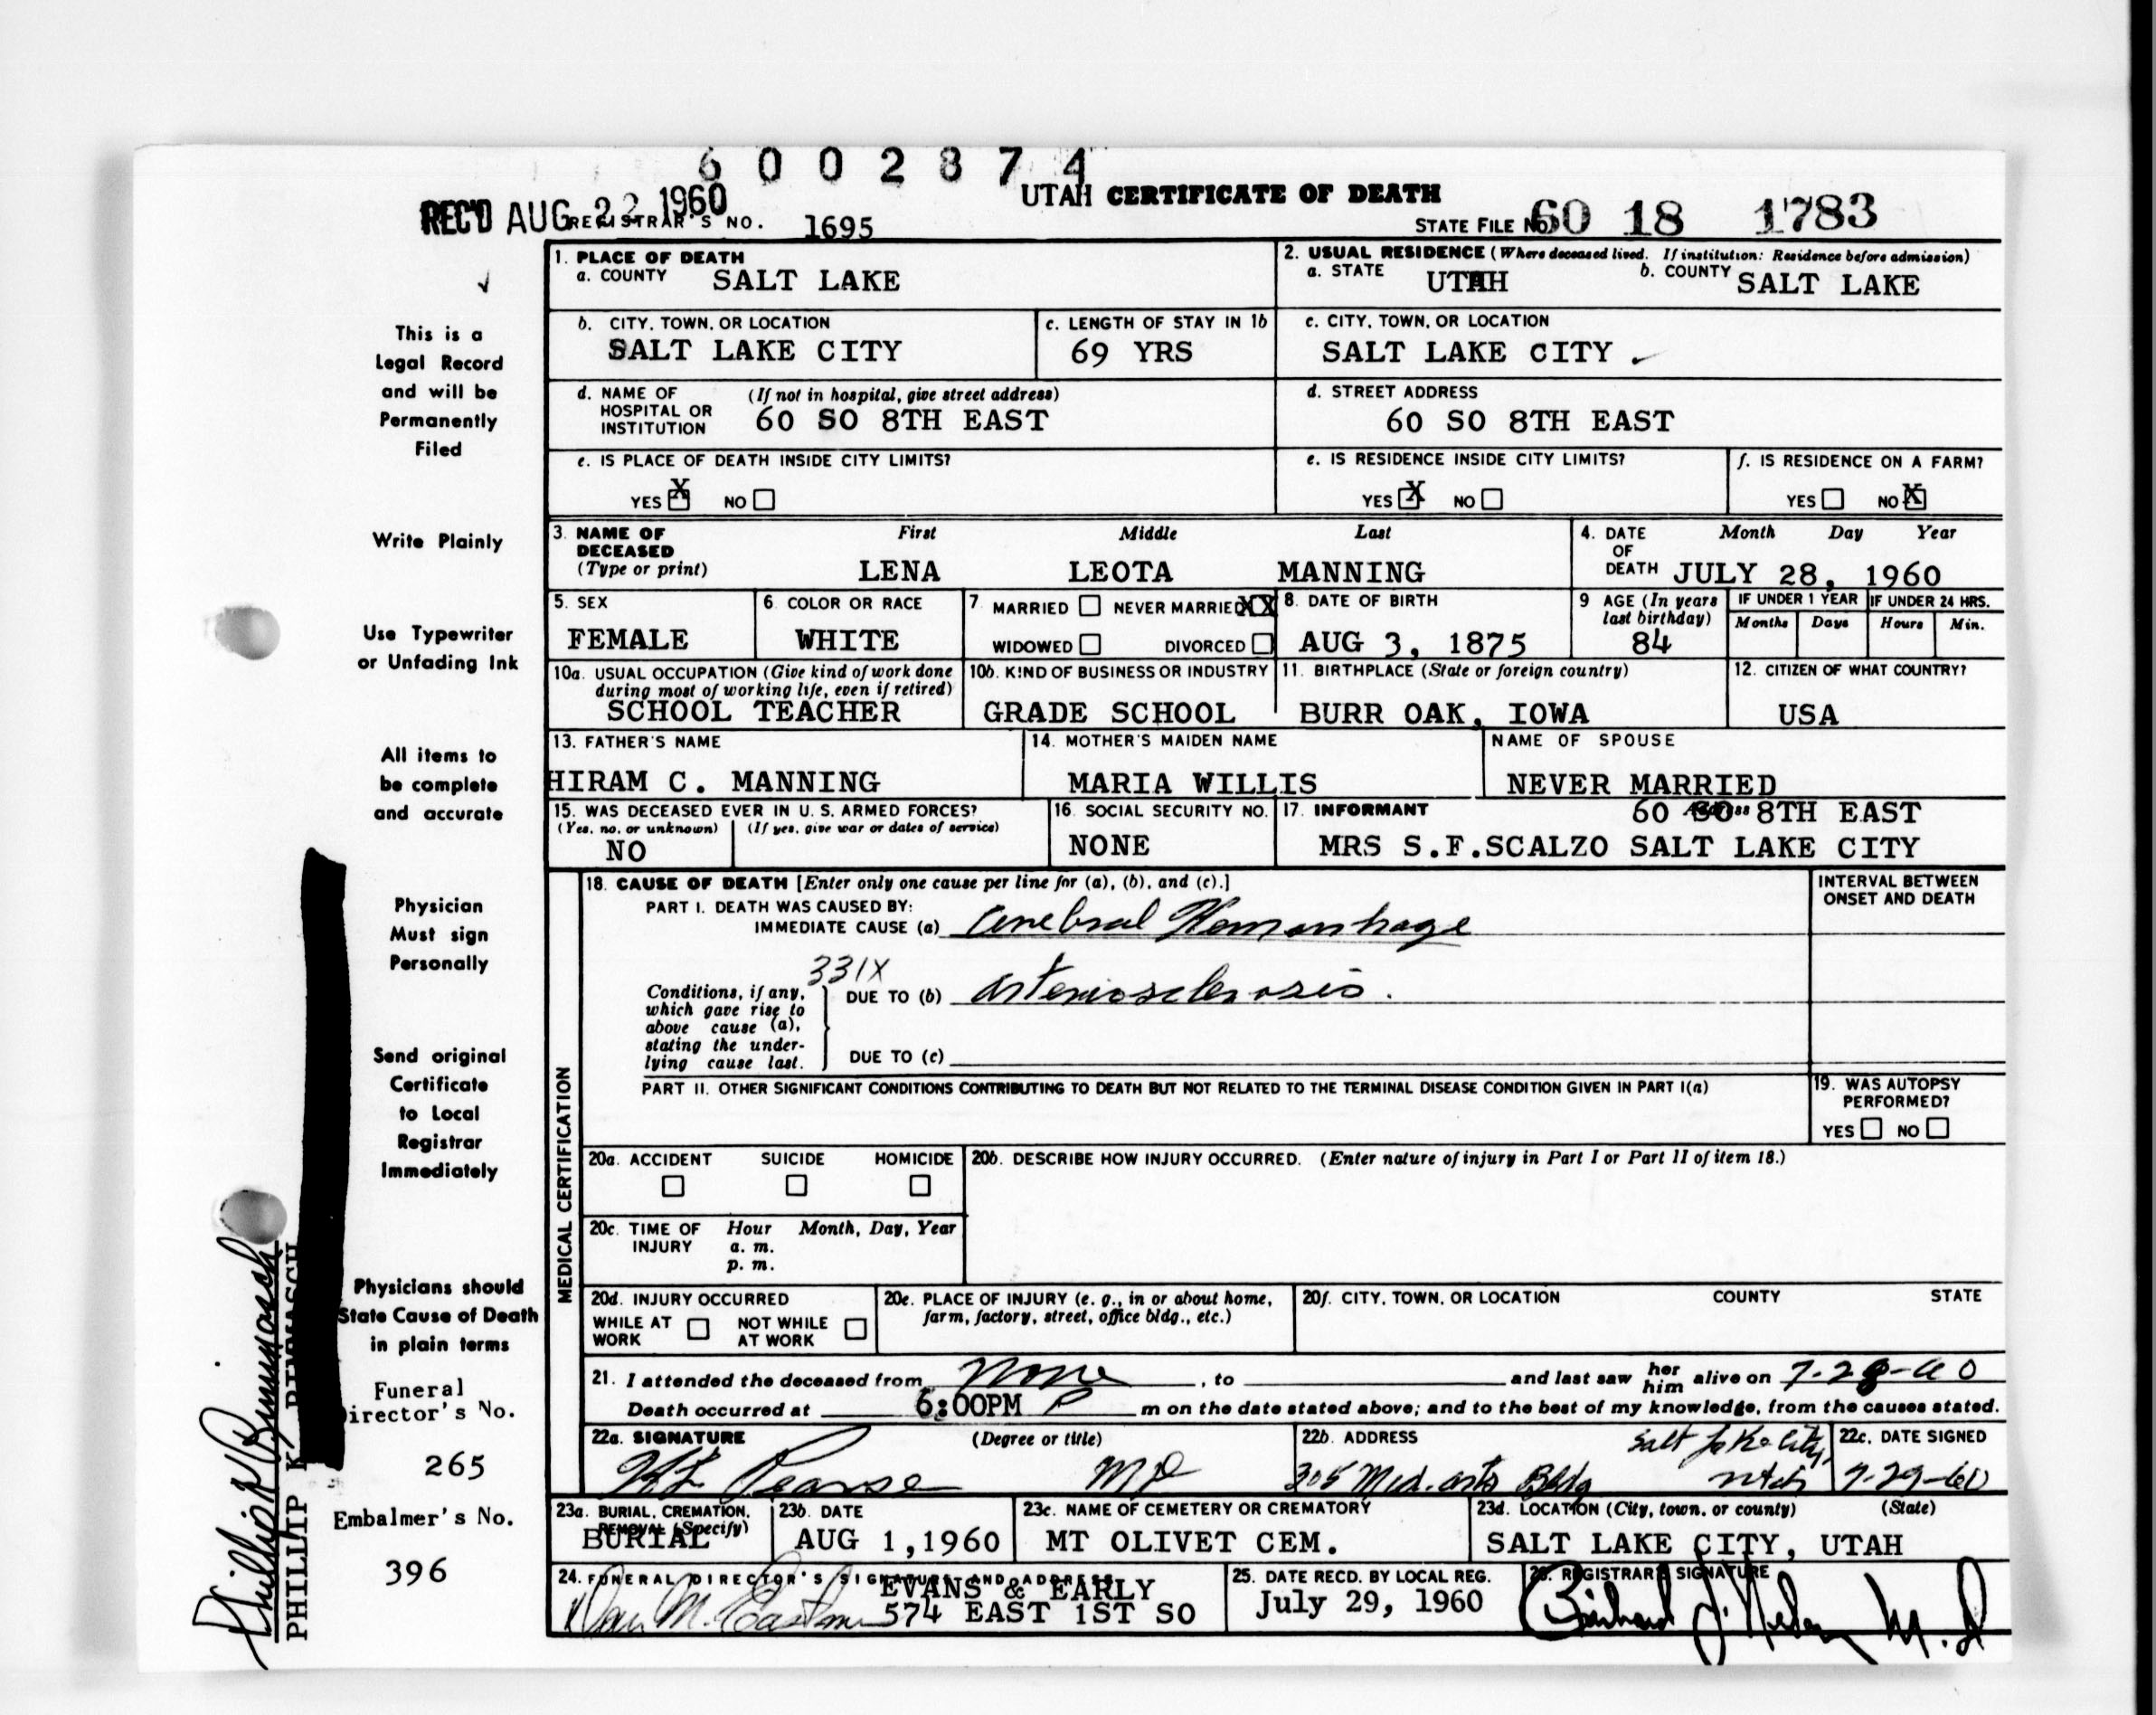 6 0 0 2 8 7 4
UTAH CERTIFICATE OF DEATH
REC'D AUG 22 1960
REGISTRAR'S NO. 1695
STATE FILE NO. 60 18 1783
1. PLACE OF DEATH
a. COUNTY SALT LAKE
2. USUAL RESIDENCE (Where deceased lived. If institution: Residence before admission)
a. STATE UTAH b. COUNTY SALT LAKE
b. CITY, TOWN, OR LOCATION
SALT LAKE CITY
c. LENGTH OF STAY IN 1b
69 YRS
c. CITY, TOWN, OR LOCATION
SALT LAKE CITY
d. NAME OF HOSPITAL OR INSTITUTION (If not in hospital, give street address)
60 SO 8TH EAST
d. STREET ADDRESS
60 SO 8TH EAST
e. IS PLACE OF DEATH INSIDE CITY LIMITS?
YES X NO
e. IS RESIDENCE INSIDE CITY LIMITS?
YES X NO
f. IS RESIDENCE ON A FARM?
YES NO X
3. NAME OF DECEASED (Type or print)
First Middle Last
LENA LEOTA MANNING
4. DATE OF DEATH Month Day Year
JULY 28, 1960
5. SEX
FEMALE
6. COLOR OR RACE
WHITE
7 MARRIED NEVER MARRIED XX
WIDOWED DIVORCED
8. DATE OF BIRTH
AUG 3, 1875
9 AGE (In years last birthday)
84
IF UNDER 1 YEAR IF UNDER 24 HRS.
Months Days Hours Min.
10a. USUAL OCCUPATION (Give kind of work done during most of working life, even if retired)
SCHOOL TEACHER
10b. KIND OF BUSINESS OR INDUSTRY
GRADE SCHOOL
11. BIRTHPLACE (State or foreign country)
BURR OAK, IOWA
12. CITIZEN OF WHAT COUNTRY?
USA
13. FATHER'S NAME
HIRAM C. MANNING
14. MOTHER'S MAIDEN NAME
MARIA WILLIS
NAME OF SPOUSE
NEVER MARRIED
15. WAS DECEASED EVER IN U. S. ARMED FORCES?
(Yes, no, or unknown) (If yes, give war or dates of service)
NO
16. SOCIAL SECURITY NO.
NONE
17. INFORMANT Address
60 SO 8TH EAST
MRS S.F.SCALZO SALT LAKE CITY
MEDICAL CERTIFICATION
18. CAUSE OF DEATH [Enter only one cause per line for (a), (b), and (c).]
INTERVAL BETWEEN ONSET AND DEATH
PART I. DEATH WAS CAUSED BY:
IMMEDIATE CAUSE (a) Cerebral Hemorrhage
331X
Conditions, if any, which gave rise to above cause (a), stating the underlying cause last.
DUE TO (b) Arteriosclerosis.
DUE TO (c)
PART II. OTHER SIGNIFICANT CONDITIONS CONTRIBUTING TO DEATH BUT NOT RELATED TO THE TERMINAL DISEASE CONDITION GIVEN IN PART I(a)
19. WAS AUTOPSY PERFORMED?
YES NO
20a. ACCIDENT SUICIDE HOMICIDE
20b. DESCRIBE HOW INJURY OCCURRED. (Enter nature of injury in Part I or Part II of item 18.)
20c. TIME OF INJURY Hour Month, Day, Year
a. m.
p. m.
20d. INJURY OCCURRED
WHILE AT WORK NOT WHILE AT WORK
20e. PLACE OF INJURY (e. g., in or about home, farm, factory, street, office bldg., etc.)
20f. CITY, TOWN, OR LOCATION COUNTY STATE
21. I attended the deceased from None, to and last saw her him alive on 7-28-60
Death occurred at 6:00PM P m on the date stated above; and to the best of my knowledge, from the causes stated.
22a. SIGNATURE (Degree or title)
Pearse MD
22b. ADDRESS
305 Med. arts Bldg Salt Lake City, Utah
22c. DATE SIGNED
7-29-60
23a. BURIAL, CREMATION, REMOVAL (Specify)
BURIAL
23b. DATE
AUG 1,1960
23c. NAME OF CEMETERY OR CREMATORY
MT OLIVET CEM.
23d. LOCATION (City, town, or county) (State)
SALT LAKE CITY, UTAH
24. FUNERAL DIRECTOR'S SIGNATURE AND ADDRESS
EVANS & EARLY
574 EAST 1ST SO
25. DATE RECD. BY LOCAL REG.
July 29, 1960
26. REGISTRAR'S SIGNATURE
M.D
This is a
Legal Record
and will be
Permanently
Filed
Write Plainly
Use Typewriter
or Unfading Ink
All items to
be complete
and accurate
Physician
Must sign
Personally
Send original
Certificate
to Local
Registrar
Immediately
Physicians should
State Cause of Death
in plain terms
Funeral
Director's No.
265
Embalmer's No.
396
PHILLIP K.